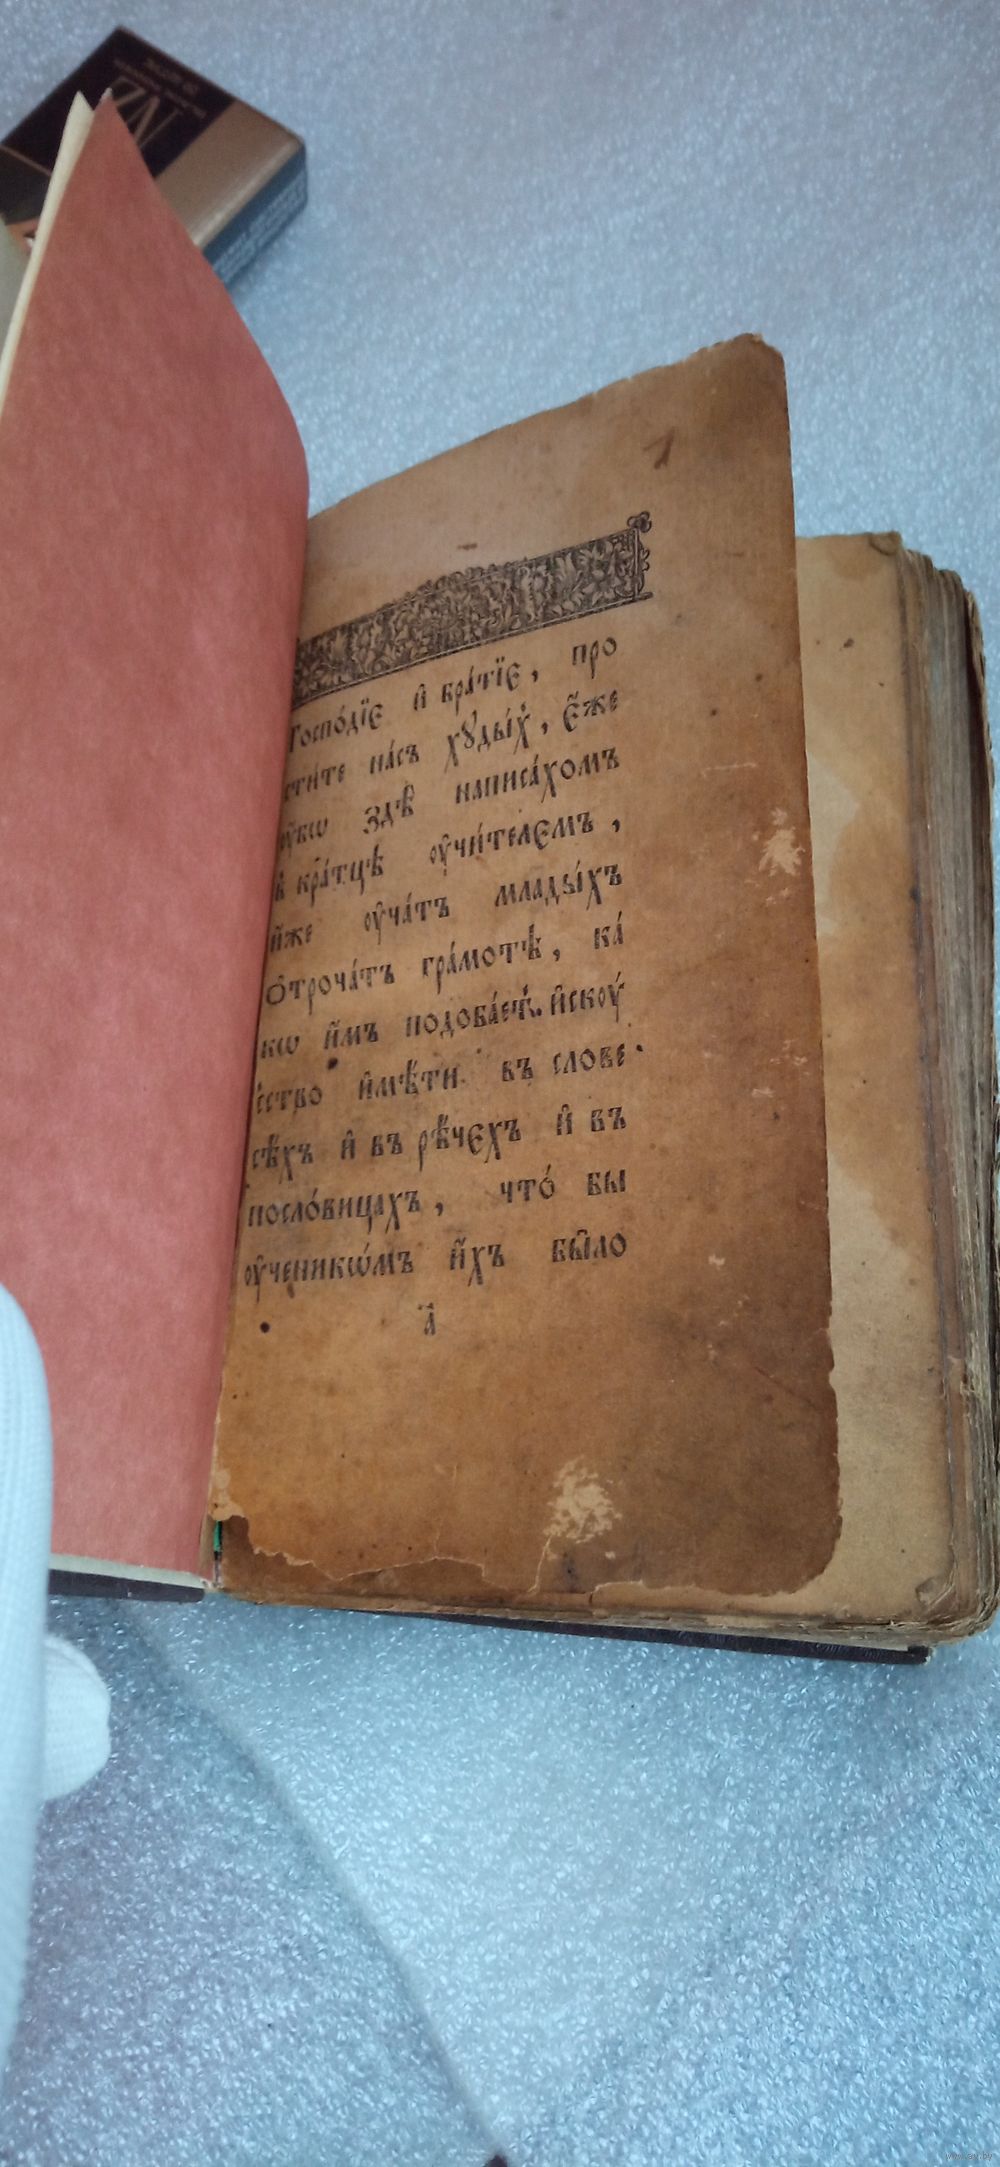 1
Госпо́дїє и҆ бра́тїє, про
сти́те на́съ хꙋды́хъ, є҆́же
ᲂу҆́бѡ здѣ̀ написа́хомъ
в̾кра́тцѣ ᲂу҆чи́телємъ,
и҆̀же ᲂу҆ча́тъ млады́хъ
ѻ҆троча́тъ гра́мотѣ, ка́
кѡ и҆̀мъ подоба́етъ и҆скᲂу́
сство и҆мѣ́ти въ слове
сѣ́хъ и҆ въ рѣ́чєхъ и҆ въ
посло́вицахъ, что́ бы
ᲂу҆ченикѡ́мъ и҆́хъ бы̑ло
а҃
NZ
www.ay.by